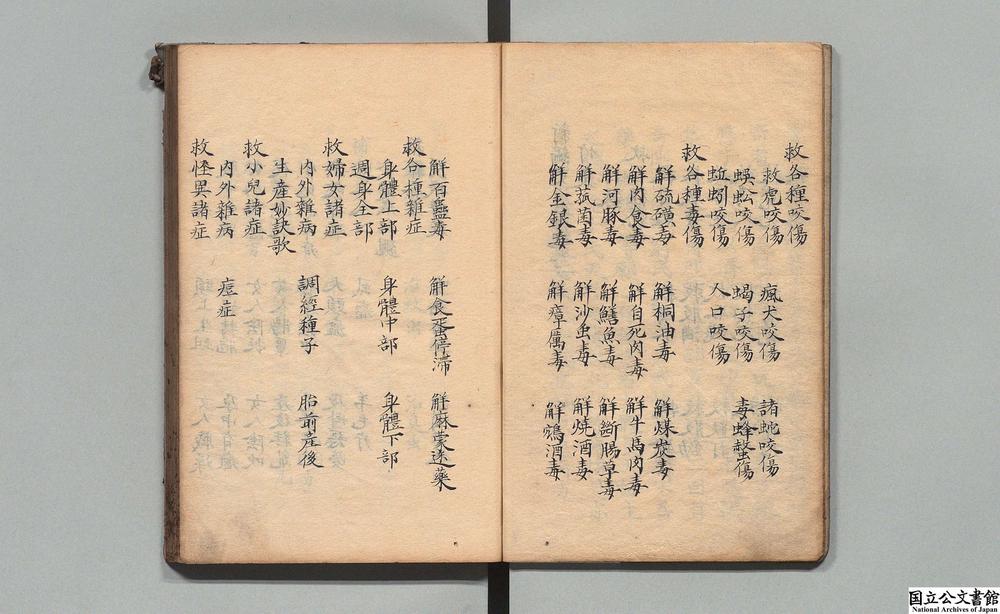 救各種咬傷
救虎咬傷 瘋犬咬傷 諸蛇咬傷
蜈蚣咬傷 蝎子咬傷 毒蜂螫傷
蚯蚓咬傷 人口咬傷
救各種毒傷
解硫磺毒 解桐油毒 解煤炭毒
解肉食毒 解自死肉毒 解牛馬肉毒
解河豚毒 解鱔魚毒 解斷腸草毒
解菰菌毒 解沙虫毒 解燒酒毒
解金銀毒 解瘴厲毒 解鴆酒毒
解百蠱毒 解食蛋停滯 解麻蒙迷藥
救各種雜症
身體上部 身體中部 身體下部
週身全部
救婦女諸症
内外雜病 調經種子 胎前產後
生產妙訣歌
救小兒諸症
内外雜病 痘症
救怪異諸症
国立公文書館
National Archives of Japan